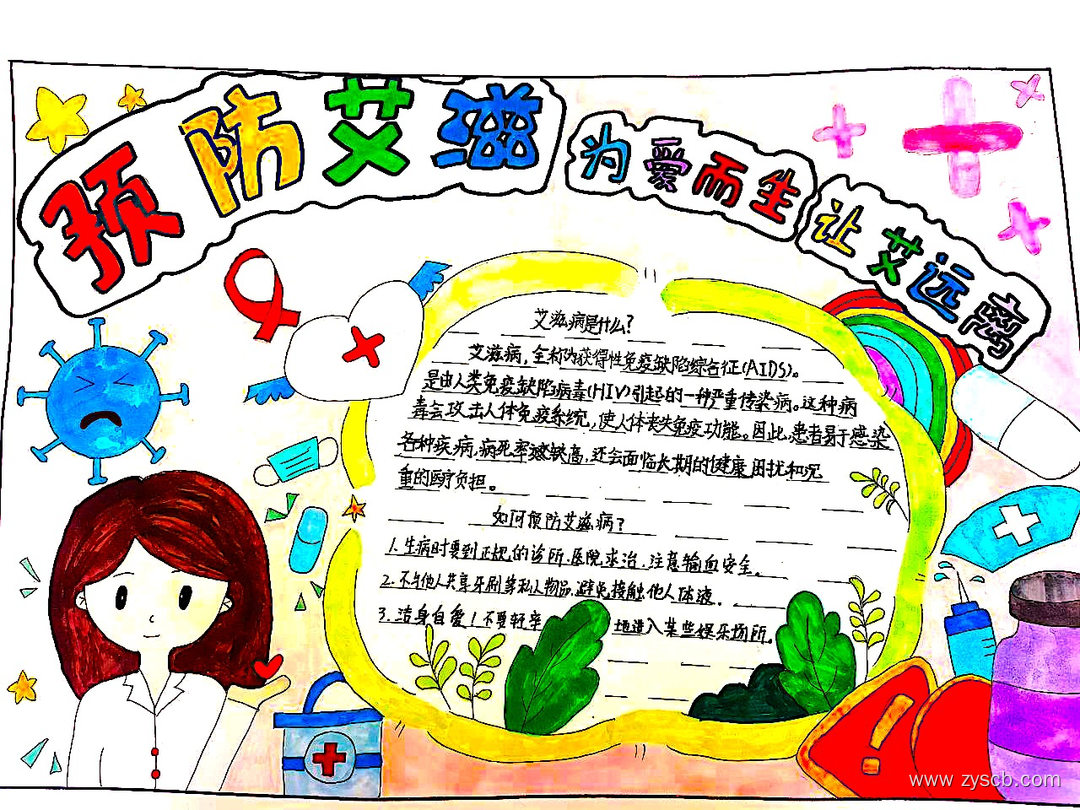 预防艾滋
为爱而生
让艾远离
艾滋病是什么?
艾滋病,全称为获得性免疫缺陷综合征(AIDS)。
是由人类免疫缺陷病毒(HIV)引起的一种严重传染病。这种病
毒会攻击人体免疫系统,使人体丧失免疫功能。因此,患者易于感染
各种疾病,病死率较高,还会面临长期的健康困扰和沉
重的医疗负担。
如何预防艾滋病?
1.生病时要到正规的诊所、医院求治,注意输血安全。
2.不与他人共享牙刷等私人物品,避免接触他人体液。
3.洁身自爱!不要轻率地进入某些娱乐场所。
www.zyscb.com